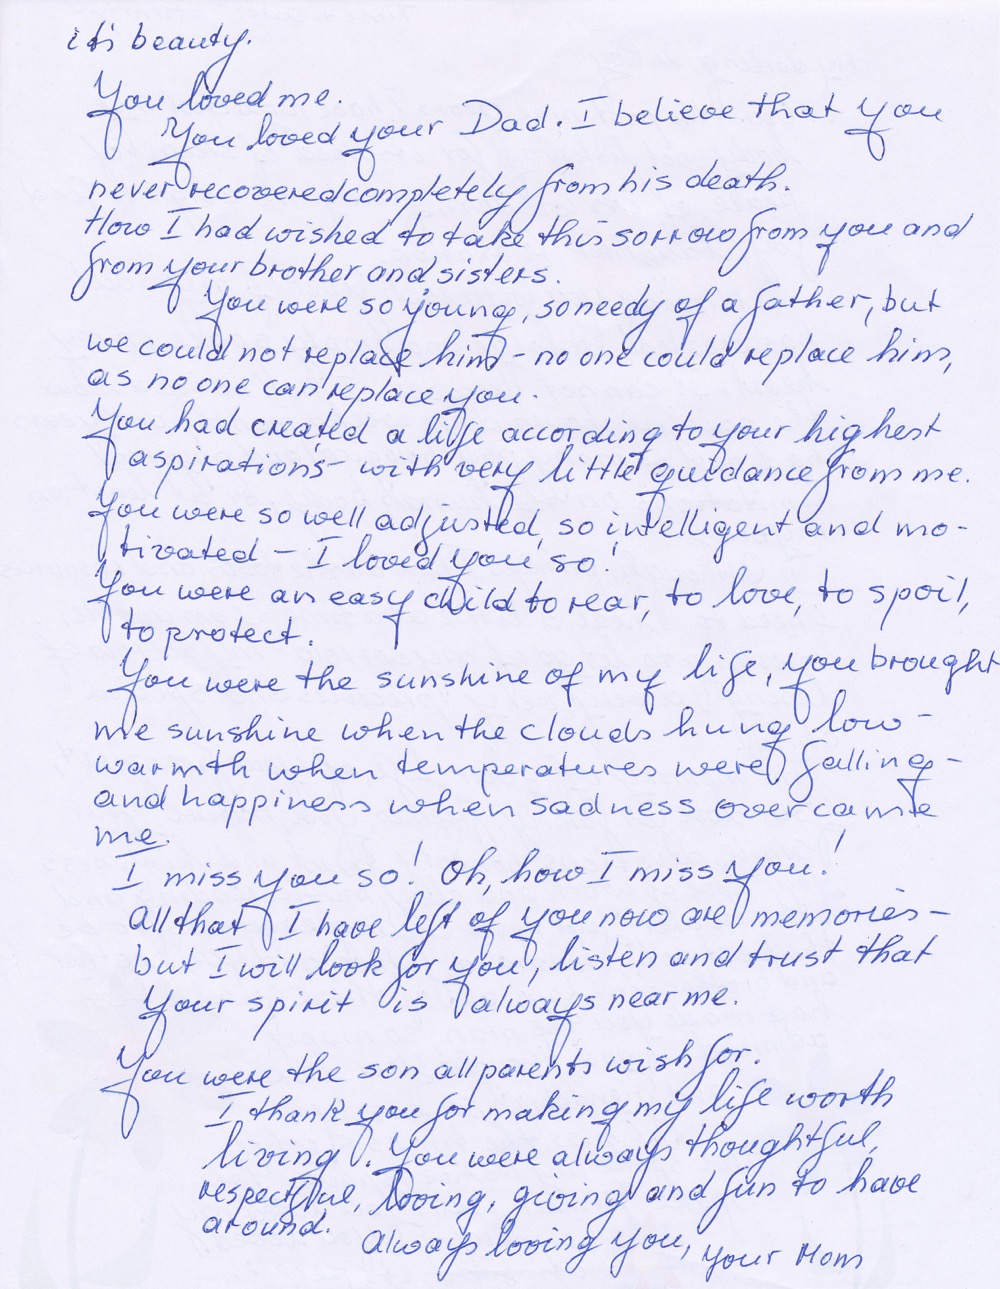 it's beauty.
You loved me.
You loved your Dad. I believe that you
never recovered completely from his death.
How I had wished to take this sorrow from you and
from your brother and sisters.
You were so young, so needy of a father, but
we could not replace him - no one could replace him,
as no one can replace you.
You had created a life according to your highest
aspirations - with very little guidance from me.
You were so well adjusted, so intelligent and mo-
tivated - I loved you so!
You were an easy child to rear, to love, to spoil,
to protect.
You were the sunshine of my life, you brought
me sunshine when the clouds hung low -
warmth when temperatures were falling -
and happiness when sadness overcame
me.
I miss you so! Oh, how I miss you!
All that I have left of you now are memories -
but I will look for you, listen and trust that
your spirit is always near me.
You were the son all parents wish for.
I thank you for making my life worth
living. You were always thoughtful,
respectful, loving, giving and fun to have
around.
Always loving you, your Mom